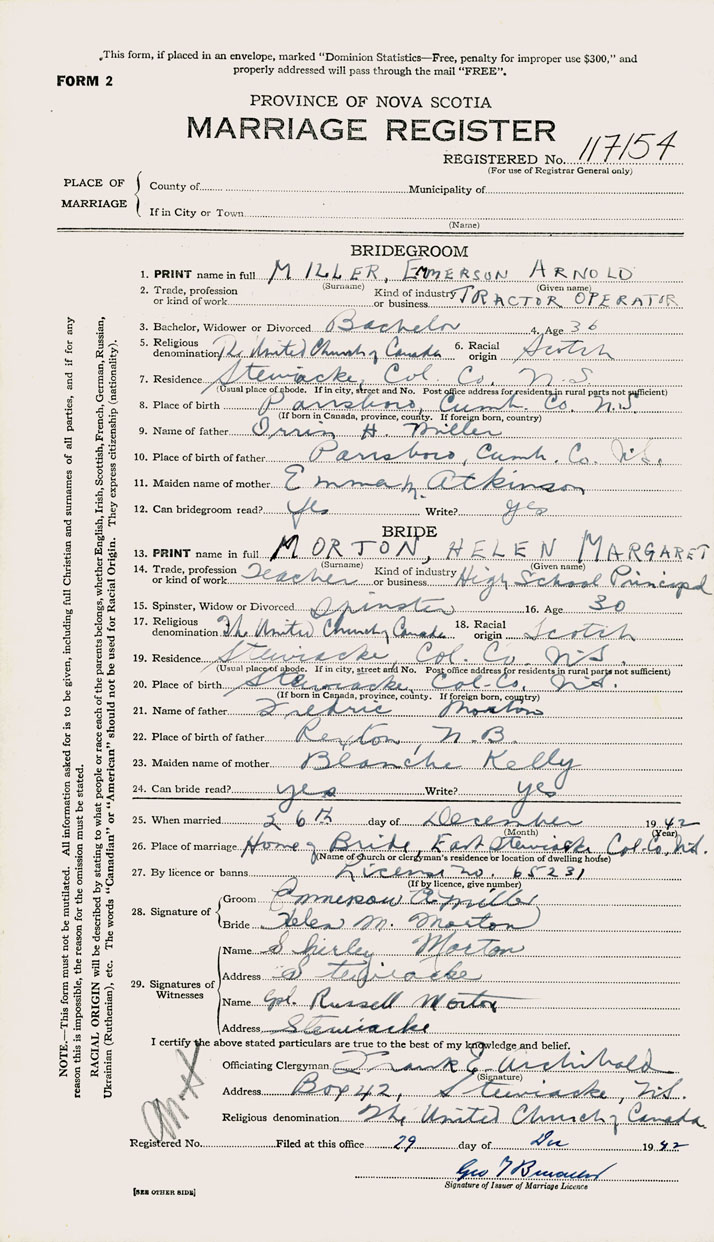 This form, if placed in an envelope, marked "Dominion Statistics—Free, penalty for improper use $300," and
properly addressed will pass through the mail "FREE".
FORM 2
PROVINCE OF NOVA SCOTIA
MARRIAGE REGISTER
REGISTERED No. 117154
(For use of Registrar General only)
PLACE OF MARRIAGE
County of Municipality of
If in City or Town
(Name)
BRIDEGROOM
1. PRINT name in full MILLER, EMERSON ARNOLD
(Surname) (Given name)
2. Trade, profession or kind of work Kind of industry or business TRACTOR OPERATOR
3. Bachelor, Widower or Divorced Bachelor 4. Age 36
5. Religious denomination The United Church of Canada 6. Racial origin Scotch
7. Residence Stewiacke, Col. Co. N.S.
(Usual place of abode. If in city, street and No. Post office address for residents in rural parts not sufficient)
8. Place of birth Parrsboro, Cumb. Co. N.S.
(If born in Canada, province, county. If foreign born, country)
9. Name of father Orrin H. Miller
10. Place of birth of father Parrsboro, Cumb. Co. N.S.
11. Maiden name of mother Emma Atkinson
12. Can bridegroom read? Yes Write? Yes
BRIDE
13. PRINT name in full MORTON, HELEN MARGARET
(Surname) (Given name)
14. Trade, profession or kind of work Teacher Kind of industry or business High School Principal
15. Spinster, Widow or Divorced Spinster 16. Age 30
17. Religious denomination The United Church of Canada 18. Racial origin Scotch
19. Residence Stewiacke, Col. Co. N.S.
(Usual place of abode. If in city, street and No. Post office address for residents in rural parts not sufficient)
20. Place of birth Stewiacke, Col. Co. N.S.
(If born in Canada, province, county. If foreign born, country)
21. Name of father Fredric Morton
22. Place of birth of father Rexton, N.B
23. Maiden name of mother Blanche Kelly
24. Can bride read? yes Write? yes
25. When married 26th day of December 1942
(Month) (Year)
26. Place of marriage Home of Bride, East Stewiacke Col. Co, N.S.
(Name of church or clergyman's residence or location of dwelling house)
27. By licence or banns License no. 65231
(If by licence, give number)
28. Signature of
Groom Emmerson A Miller
Bride Helen M. Morton
29. Signatures of Witnesses
Name Shirley Morton
Address Stewiacke
Name Cpl. Russell Morton
Address Stewiacke
I certify the above stated particulars are true to the best of my knowledge and belief.
Officiating Clergyman Frank E. Archibald
(Signature)
Address Box 42, Stewiacke, N.S.
Religious denomination The United Church of Canada.
Registered No. Filed at this office 29 day of Dec 1942
Geo
Signature of Issuer of Marriage Licence
[SEE OTHER SIDE]
NOTE.—This form must not be mutilated. All information asked for is to be given, including full Christian and surnames of all parties, and if for any
reason this is impossible, the reason for the omission must be stated.
RACIAL ORIGIN will be described by stating to what people or race each of the parents belongs, whether English, Irish, Scottish, French, German, Russian,
Ukrainian (Ruthenian), etc. The words "Canadian" or "American" should not be used for Racial Origin. They express citizenship (nationality).